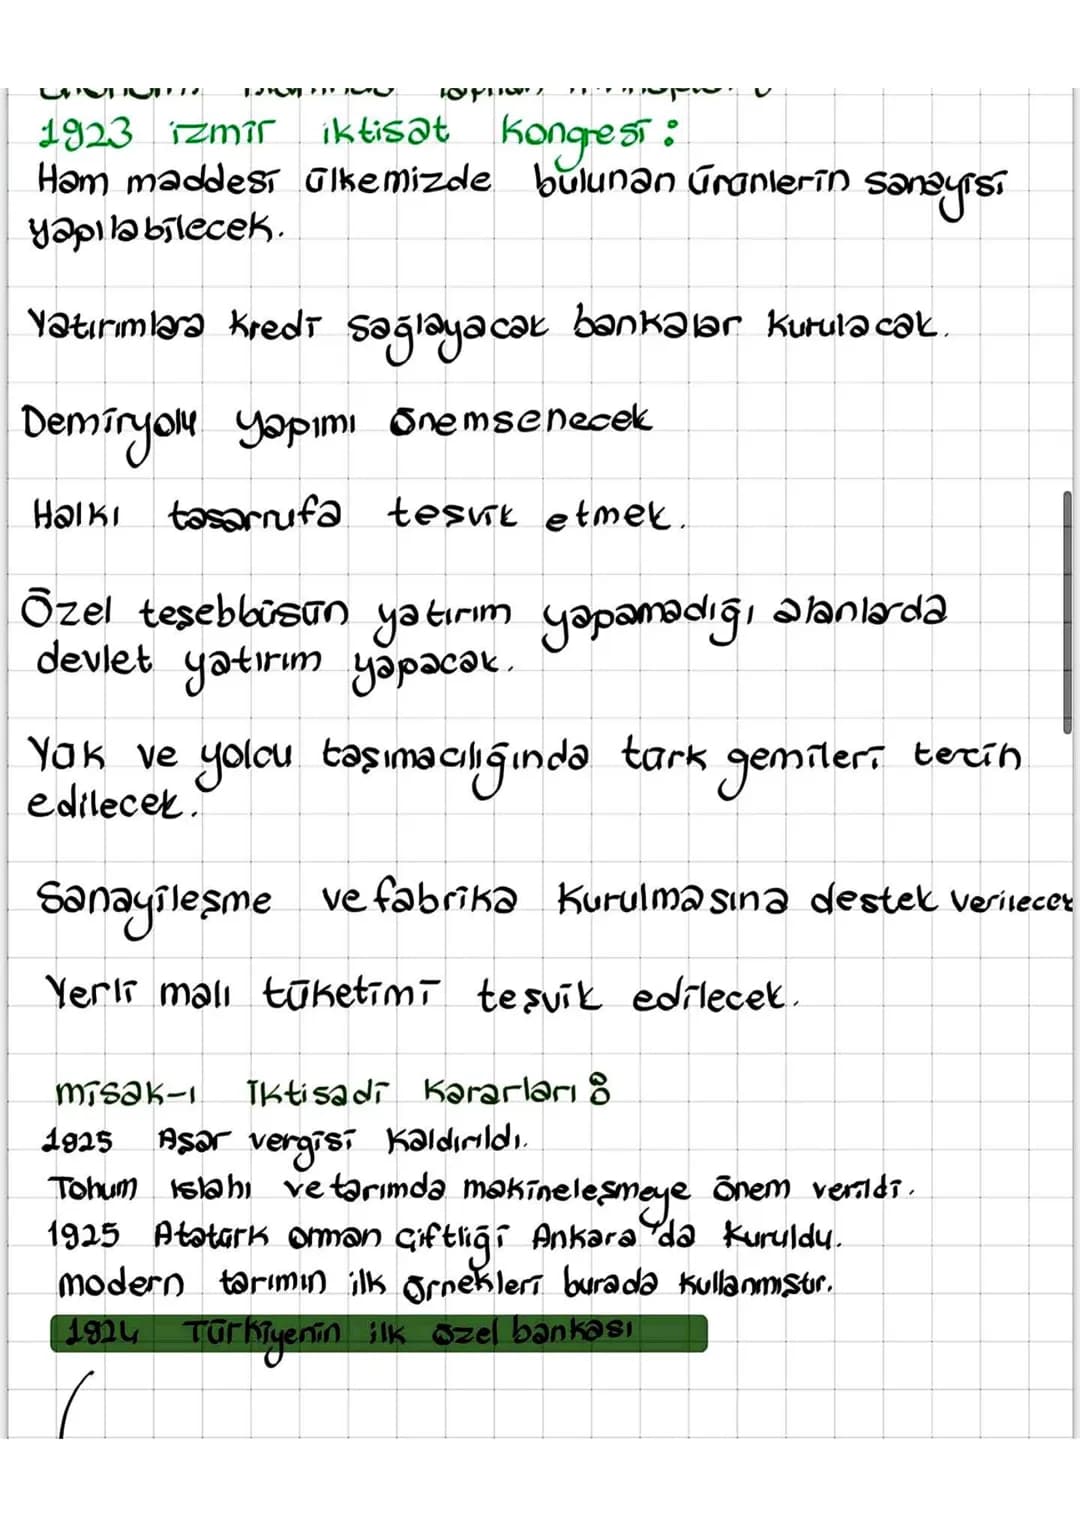 1923 izmir iktisat Kongresi:
Ham maddesi ülkemizde bulunan ürünlerin sanayisi
yapılabilecek.
Yatırımlara kredi sağlayacak bankalar kurulacak.
Demiryolu yapımı önemsenecek
Halkı tasarrufa teşvik etmek.
Özel teşebbüsün yatırım yapamadığı alanlarda
devlet yatırım yapacak.
Yük ve yolcu taşımacılığında türk gemileri tercih
edilecek.
Sanayileşme ve fabrika kurulmasına destek verilecek
Yerli malı tüketimi teşvik edilecek.
misak-ı İktisadi Kararları:
1925 Aşar vergisi kaldırıldı.
Tohum ıslahı ve tarımda makineleşmeye önem verildi.
1925 Atatürk orman çiftliği Ankara'da kuruldu.
modern tarımın ilk örnekleri burada kullanmıştır.
1924 Türkiyenin ilk özel bankası